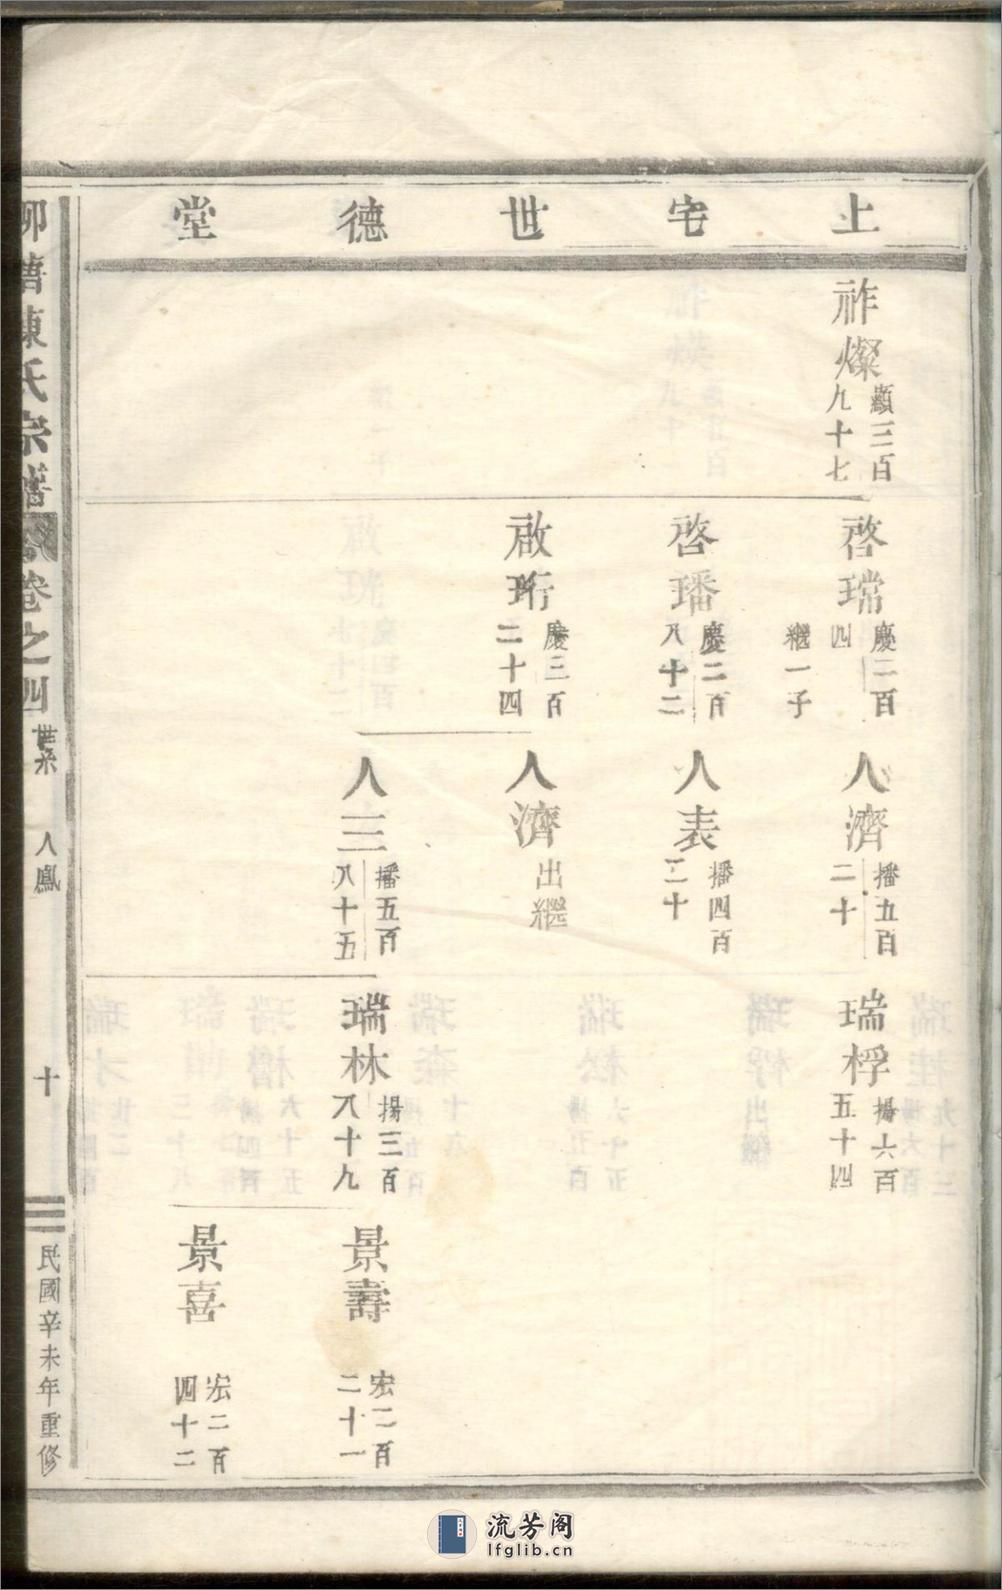 上宅世德堂
祚燦
顯三百
九十七
啓瑺
慶二百
四
繼一子
啓璠
慶二百
八十二
啟珩
慶三百
二十四
人濟
播五百
二十
人表
播四百
二十
人濟
出繼
人三
播五百
八十五
瑞桴
揚六百
五十四
瑞林
揚三百
八十九
景壽
宏二百
二十一
景喜
宏二百
四十二
陳氏宗譜
卷之四
世系 人鳳
十
民國辛未年重修
流芳阁
lfglib.cn